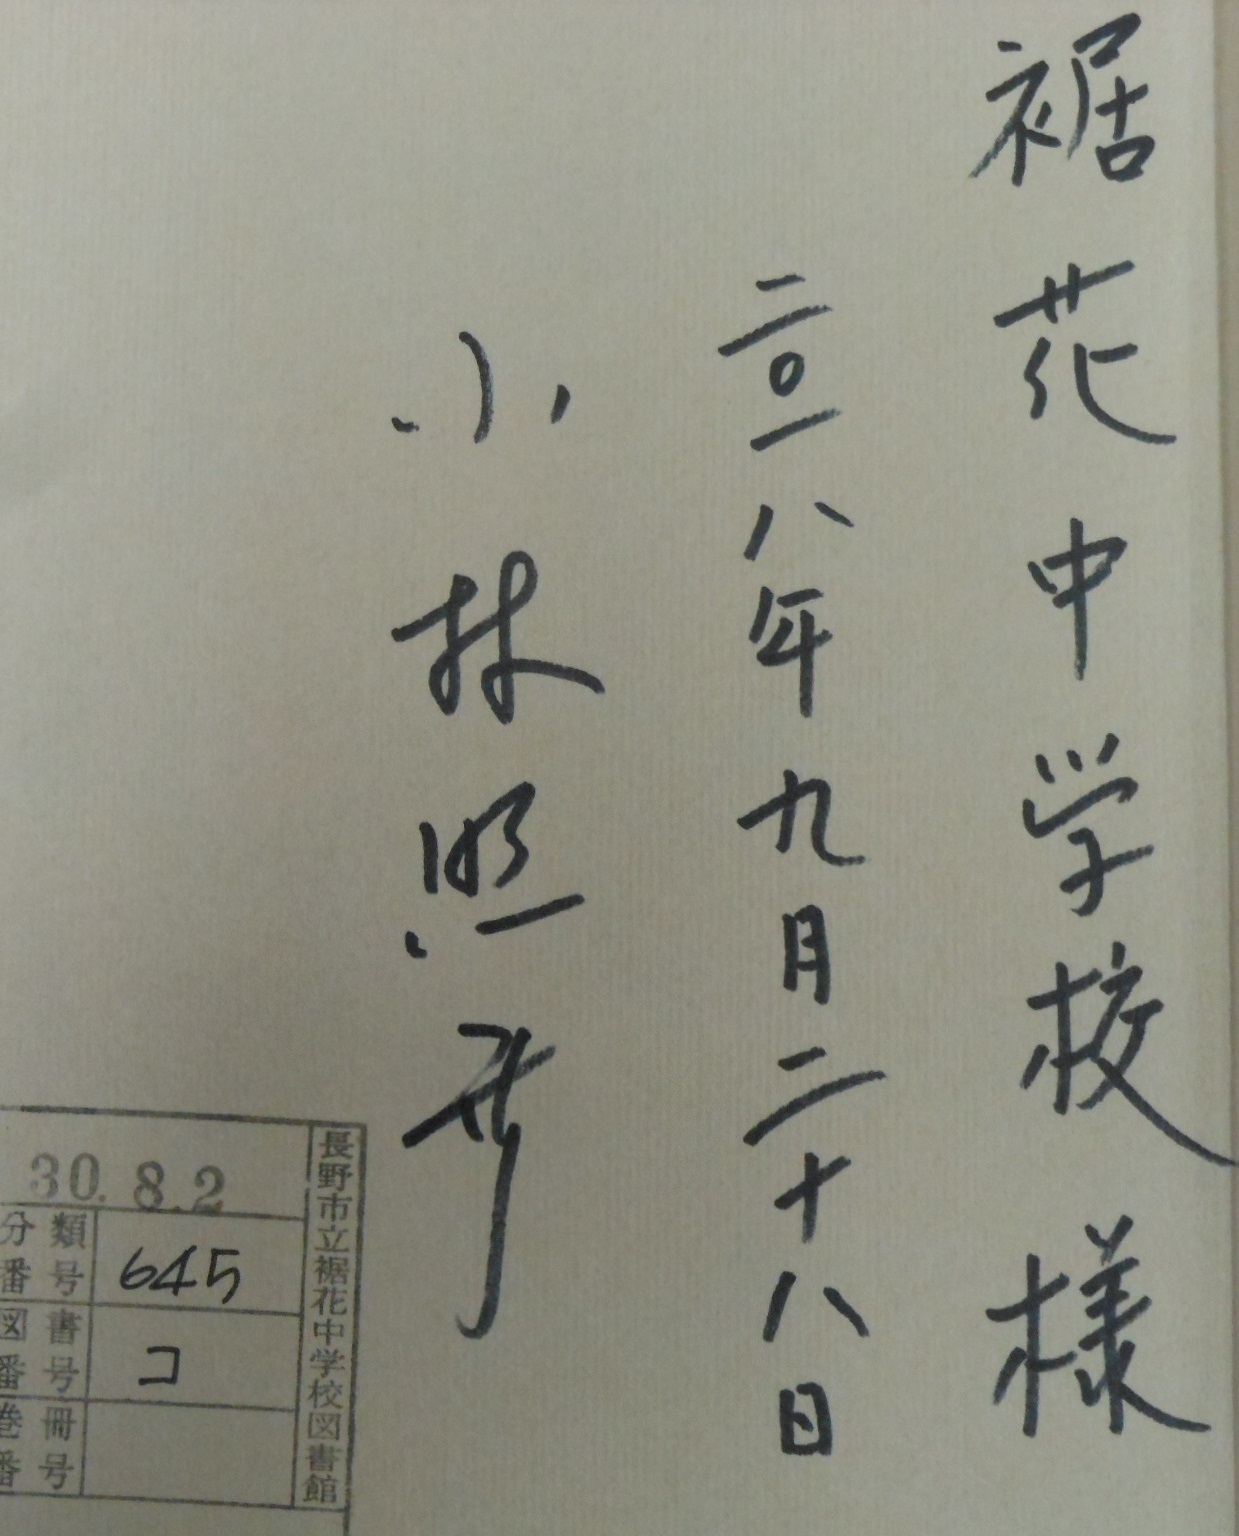 裾花中学校様
二〇一八年九月二十八日
小林照幸
長野市立裾花中学校図書館
30.8.2
分類番号 645
図書番号 コ
巻冊番号